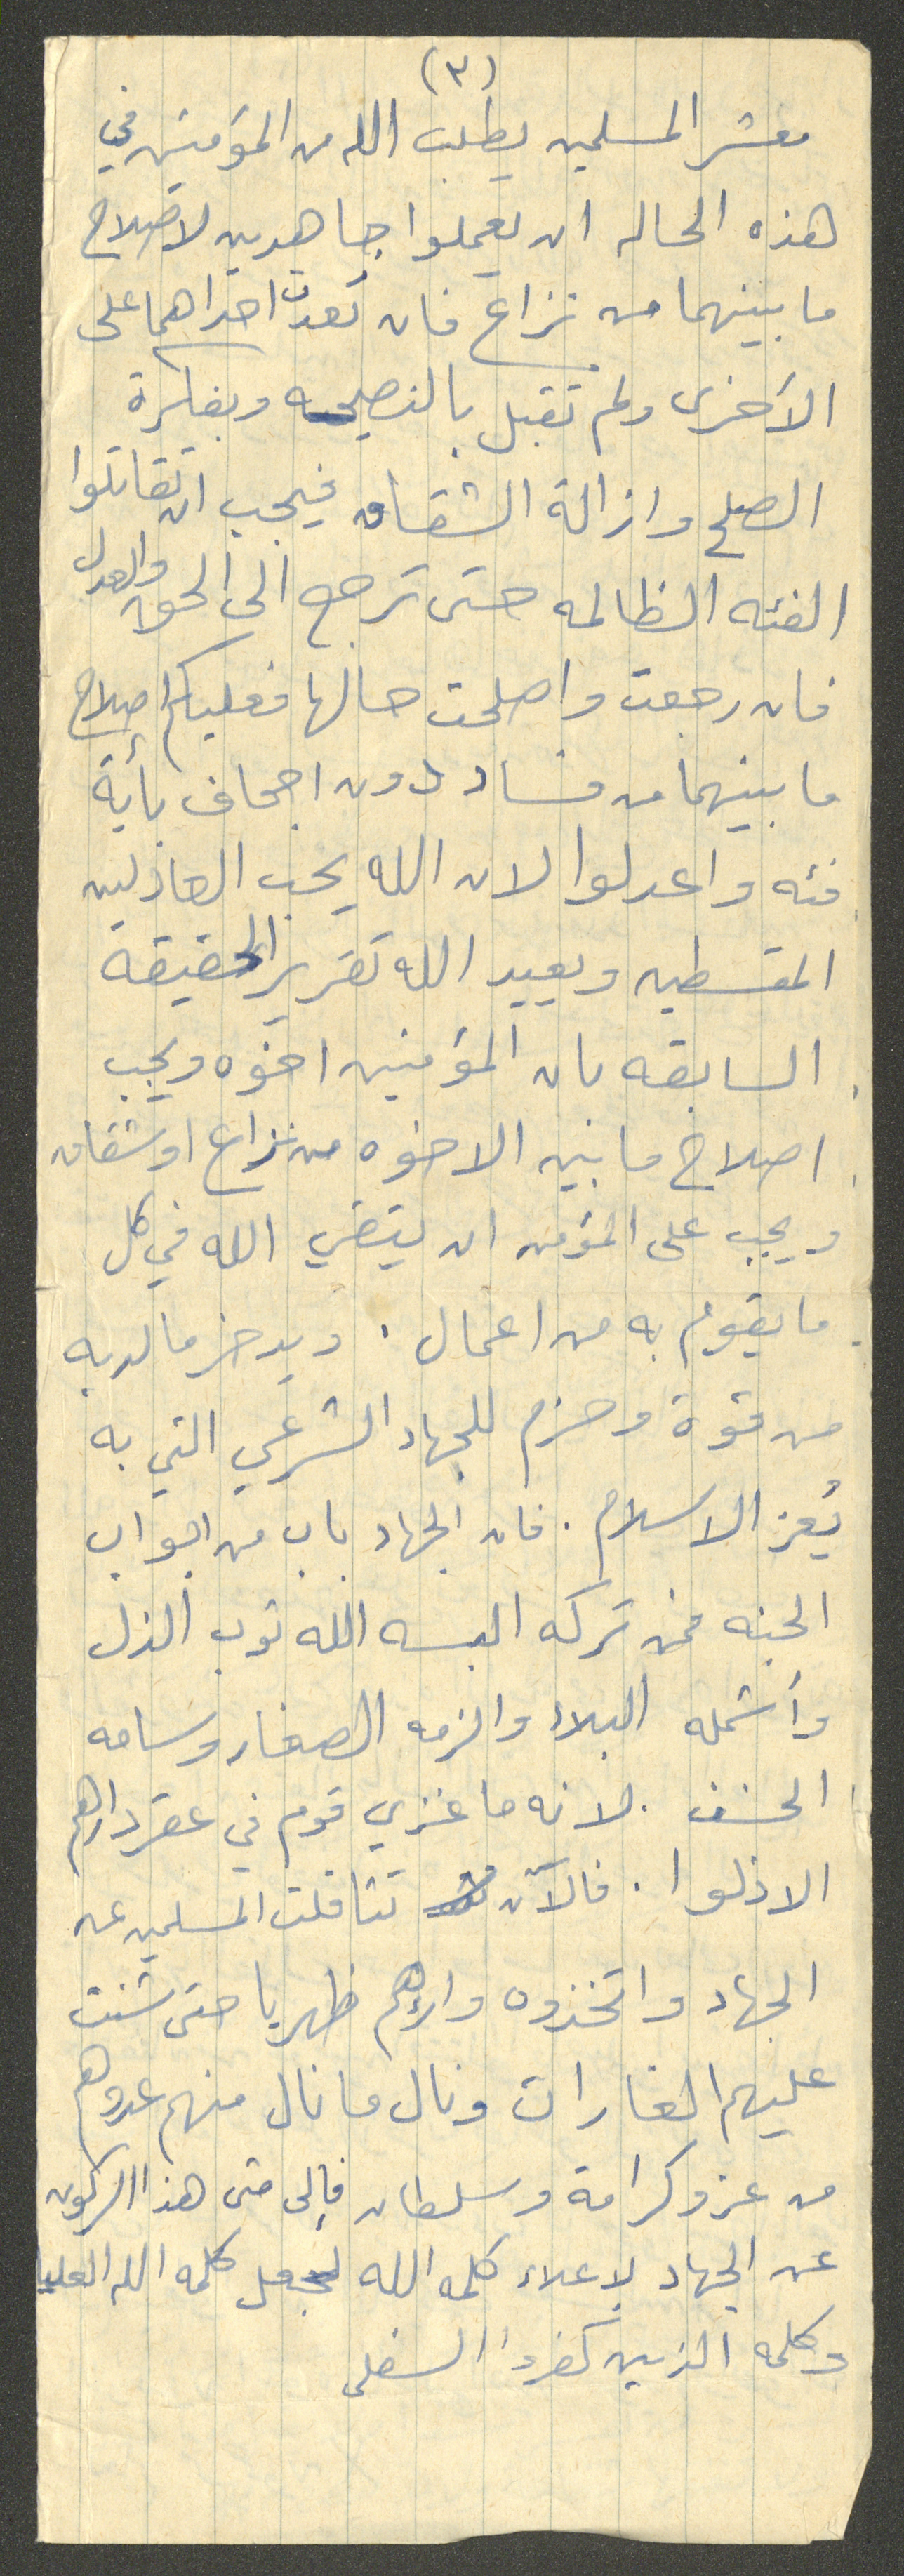 (٣)
معشر المسلمين يطلب الله من المؤمنين في
هذه الحاله ان يعملوا جاهدين لاصلاح
ما بينهما من نزاع فان تعدت احداهما على
الأخرى ولم تقبل بالنصيحه وبفكرة
الصلح وازالة الشقاق فيجب ان تقاتلوا
الفئه الظالمه حتى ترجع الى الحق والعدل
فان رجعت واصلحت حالها فعليكم إصلاح
ما بينهما من فساد دون اجحاف بأية
فئه واعدلوا لان الله يحب العادلين
المقسطين ويعيد الله تقرير الحقيقة
السابقه بان المؤمنين اخوه ويجب
اصلاح ما بين الاخوه من نزاع او شقاق
ويجب على المؤمن ان يتقي الله في كل
ما يقوم به من اعمال . ويدخر ما لديه
من قوة وحزم للجهاد الشرعي التي به
يُعز الاسلام . فان الجهاد باب من ابواب
الجنه فمن تركه البسه الله ثوب الذل
وأشمله البلاء والزمه الصغار وسامه
الخسف . لانه ما غزي قوم في عقر دارهم
الا ذلوا . فالآن تثاقلت المسلمين عن
الجهاد واتخذوه وراءهم ظهريا حتى شنت
عليهم الغارات ونال ما نال منهم عدوهم
من عز وكرامة وسلطان فإلى متى هذا الركون
عن الجهاد لإعلاء كلمه الله لجعل كلمه الله العليا
وكلمه الذين كفروا السفلى